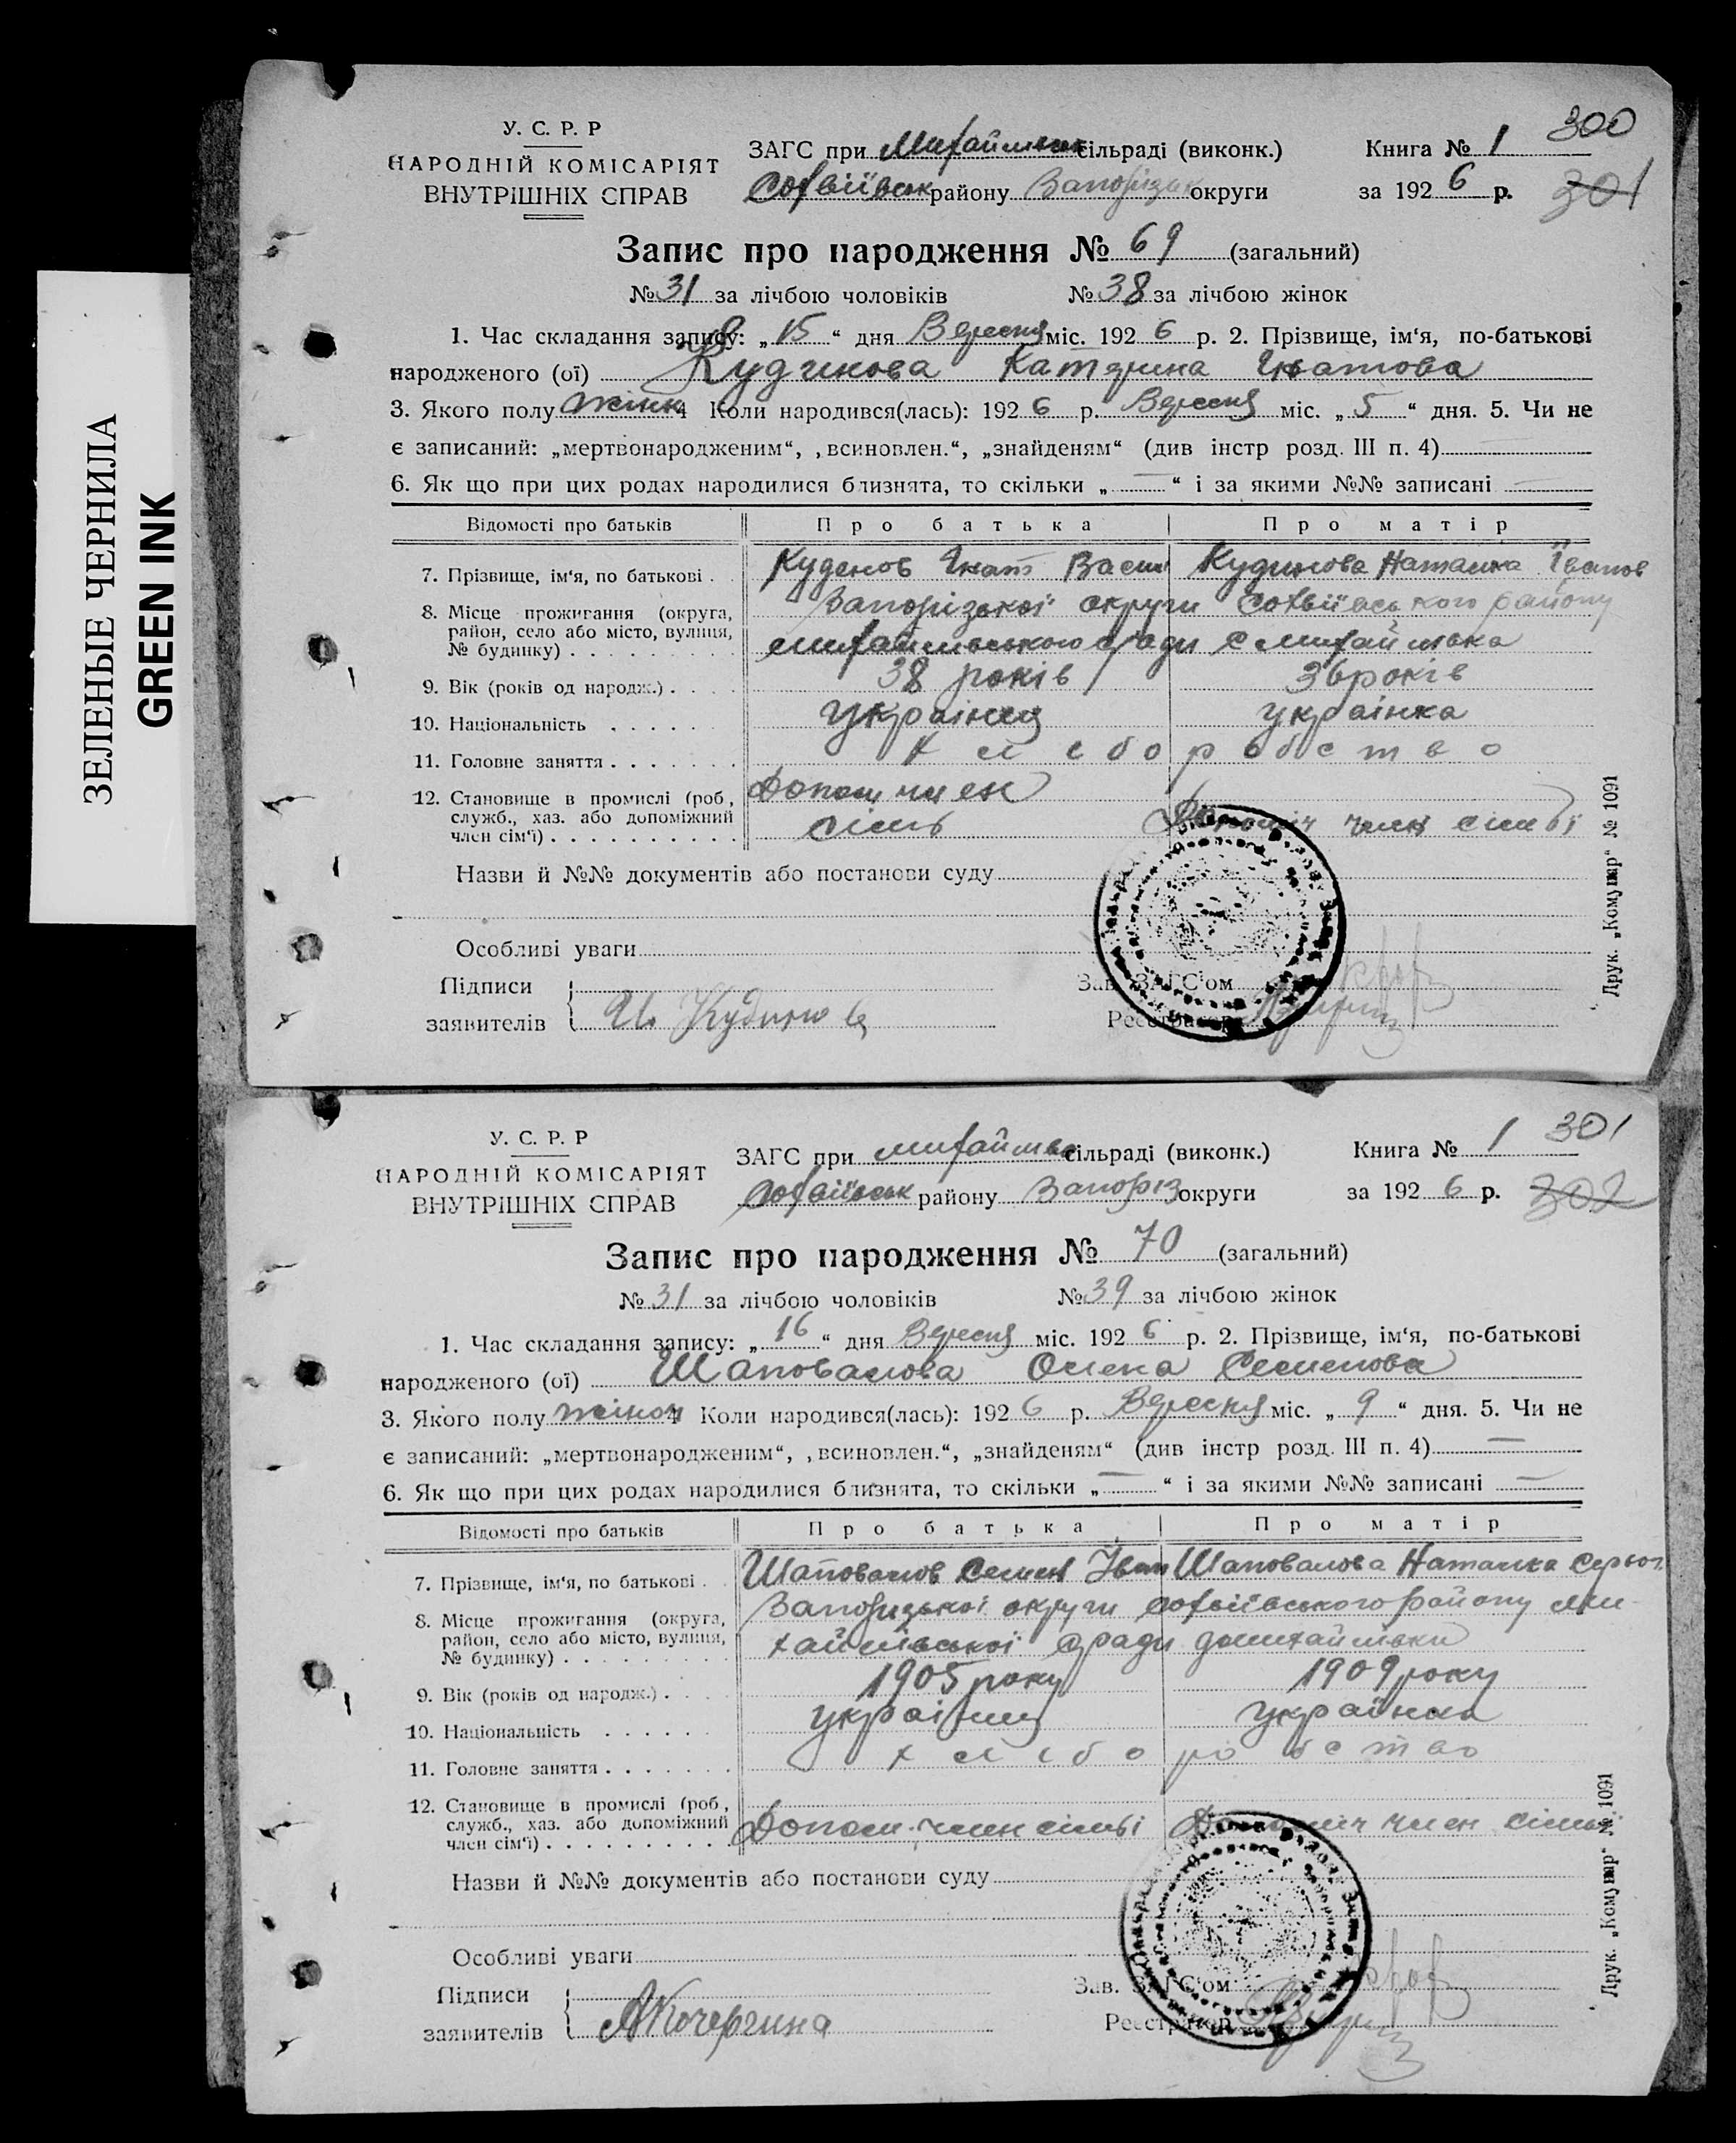 ЗЕЛЕНЫЕ ЧЕРНИЛА
GREEN INK
300
У. С. Р. Р
НАРОДНІЙ КОМІСАРІЯТ
ВНУТРІШНІХ СПРАВ
ЗАГС при Михайлівськ сільраді (виконк.)
Софіївськ району Запорізьк округи
Книга № 1
за 1926 р.
301
Запис про народження № 69 (загальний)
№ 31 за лічбою чоловіків № 38 за лічбою жінок
1. Час складання запису: „15“ дня Вересня міс. 1926 р. 2. Прізвище, ім‘я, по-батькові
народженого (ої) Кудинова Катерина Гнатова
3. Якого полу жіноч 4 Коли народився(лась): 1926 р. Вересня міс. „5“ дня. 5. Чи не
є записаний: „мертвонародженим“, „всиновлен.“, „знайденям“ (див інстр розд. III п. 4)
6. Як що при цих родах народилися близнята, то скільки „—“ і за якими №№ записані —
Відомості про батьків Про батька Про матір
7. Прізвище, ім‘я, по батькові . Куденов Гнат Васил Кудинова Наталка Іванов
8. Місце проживання (округа, район, село або місто, вулиця, № будинку) Запорізької округи Софіївського району
михайлівською с/ради с Михайлівка
9. Вік (років од народж.) 38 років 36 років
10. Національність українец українка
11. Головне заняття хліборобство
12. Становище в промислі (роб, служб., хаз. або допоміжний член сім‘ї) Допом член
сімь Допоміч член сімьї
Назви й №№ документів або постанови суду
Особливі уваги
Підписи
заявителів
Зав. ЗАГС‘ом
Реєстратор
Друк. „Комунар“ № 1091
301
У. С. Р. Р
НАРОДНІЙ КОМІСАРІЯТ
ВНУТРІШНІХ СПРАВ
ЗАГС при михайлівс сільраді (виконк.)
Софіївськ району Запоріз округи
Книга № 1
за 1926 р.
302
Запис про народження № 70 (загальний)
№ 31 за лічбою чоловіків № 39 за лічбою жінок
1. Час складання запису: „16“ дня Вересня міс. 1926 р. 2. Прізвище, ім‘я, по-батькові
народженого (ої) Шаповалова Олена Семенова
3. Якого полу жіноч 4 Коли народився(лась): 1926 р. Вересня міс. „9“ дня. 5. Чи не
є записаний: „мертвонародженим“, „всиновлен.“, „знайденям“ (див інстр розд. III п. 4) —
6. Як що при цих родах народилися близнята, то скільки „—“ і за якими №№ записані —
Відомості про батьків Про батька Про матір
7. Прізвище, ім‘я, по батькові . Шаповалов Семен Іван Шаповалова Наталка Сергог.
8. Місце проживання (округа, район, село або місто, вулиця, № будинку) Запоризької округи софіївського району ми
хайлівської с/ради
9. Вік (років од народж.) 1905 року 1909 року
10. Національність українец українка
11. Головне заняття хліборобство
12. Становище в промислі (роб, служб., хаз. або допоміжний член сім‘ї) Допом. член сімьі Допоміч член сімьї
Назви й №№ документів або постанови суду
Особливі уваги
Підписи
заявителів АКочергина
Зав. ЗАГС‘ом
Реєстратор
Друк. „Комунар“ № 1091